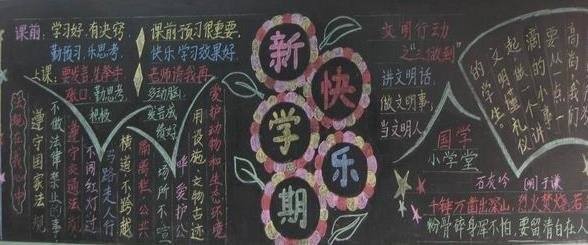 课前:学习好,有决窍,
勤预习,乐思考。
课前预习很重要,
快乐学习效果好。
上课:要发言先举手
老师请我再
口勤思考
积极
法规在我心中
遵守国家法规
不做法律禁止的事
遵守交通法规
不闯红灯过
马路走人行
横道不跨越
隔离栏,公共
场所不喧
哗爱护公
用设施,文物古迹
爱护动物和生态环境
新
快
学
乐
期
文明行动
之“三做到”
讲文明话,
做文明事,
当文明人
要从一点一
滴的小
要做一个讲
起,做
文明,懂礼仪
的学生。
国学
小学堂
石灰吟 (明)于谦
千锤万凿出深山,烈火焚烧若
粉骨碎身浑不怕,要留清白在人